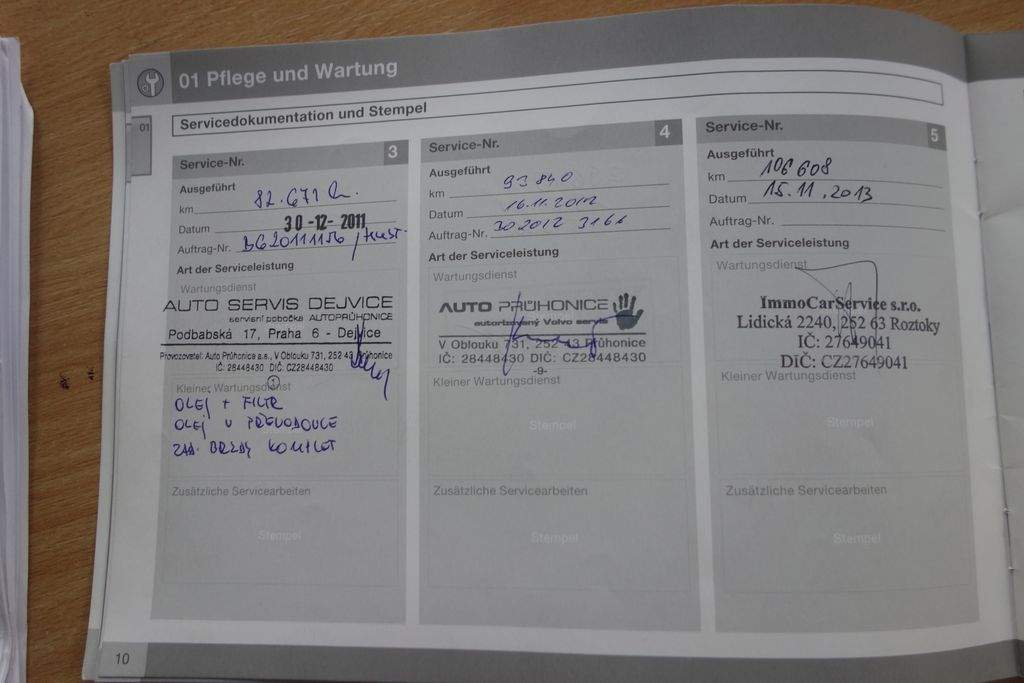 01 Pflege und Wartung
01
Servicedokumentation und Stempel
Service-Nr. 3
Ausgeführt
km 82.671
Datum 30 -12- 2011
Auftrag-Nr.
Art der Serviceleistung
Wartungsdienst
AUTO SERVIS DEJVICE
servisní pobočka AUTOPRŮHONICE
Podbabská 17, Praha 6 - Dejvice
Provozovatel: Auto Průhonice a.s., V Oblouku 731, 252 43 Průhonice
IČ: 28448430 DIČ: CZ28448430
Kleiner Wartungsdienst
OLEJ + FILTR
OLEJ V PŘEVODOVCE
ZAD. BRZDY KOMPLET
Zusätzliche Servicearbeiten
Stempel
Service-Nr. 4
Ausgeführt
km 93 840
Datum 16.11.2012
Auftrag-Nr. 302012 3161
Art der Serviceleistung
Wartungsdienst
AUTO PRŮHONICE
autorizovaný Volvo servis
V Oblouku 731, 252 43 Průhonice
IČ: 28448430 DIČ: CZ28448430
-9-
Kleiner Wartungsdienst
Stempel
Zusätzliche Servicearbeiten
Stempel
Service-Nr. 5
Ausgeführt
km 106 608
Datum 15.11.2013
Auftrag-Nr.
Art der Serviceleistung
Wartungsdienst
ImmoCarService s.r.o.
Lidická 2240, 252 63 Roztoky
IČ: 27649041
DIČ: CZ27649041
Kleiner Wartungsdienst
Stempel
Zusätzliche Servicearbeiten
Stempel
10